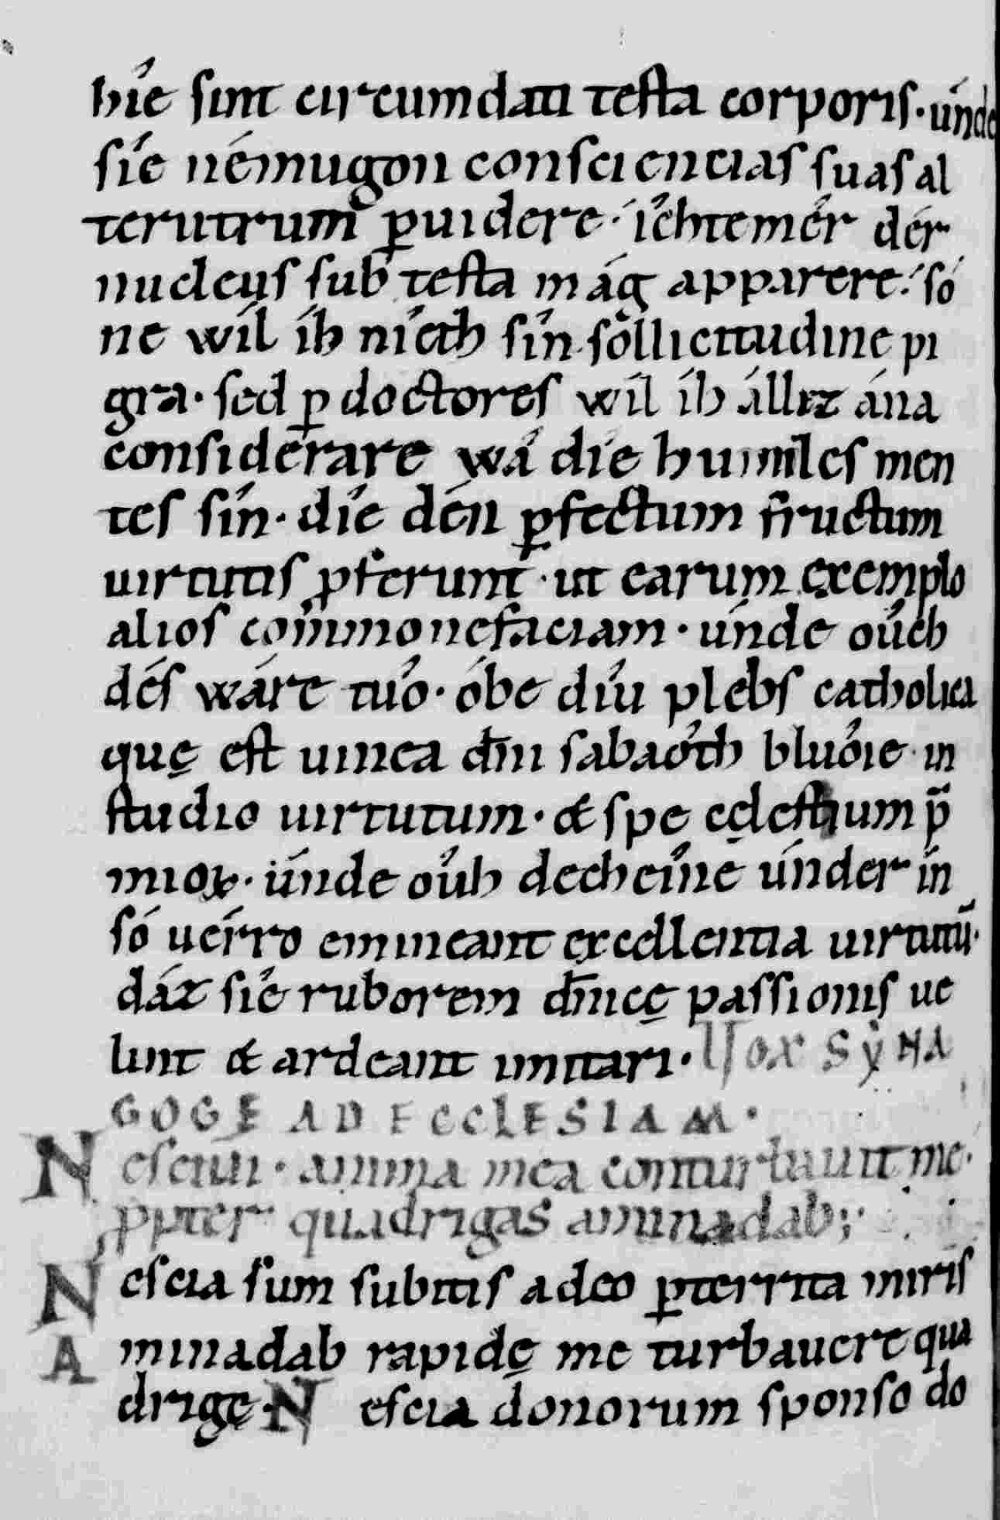 hîe sint circumdati testa corporis· únde
sîe némugon consciencias suas al
terutrum p̱uidere· íehtemêr dér
nucleus sub testa mág apparere· só
ne wíl íh nîeth sîn sollicitudine pi
gra· sed p̱ doctores wíl íh állez ána
considerare wâ dîe humiles men
tes sîn· dîe dén p̱fectum fructum
uirtutis p̱ferunt· ut earum exemplo
alios commonefaciam· únde oûch
dés wáre tuô· óbe díu plebs catholica
quę est uinea dñi sabaoth bluôie in
studio uirtutum· & spe cęlestium p̄
mioꝝ· únde oûh decheine únder ín
só uérro emineant excellentia uirtutū·
dáz sîe ruborem dñicę passionis ue
lint & ardeant imitari· Vox syna
goge ad ecclesiam·
Nesciui· anima mea conturbauit me·
p̱pter quadrigas aminadab;
Nescia sum subitis adeo p̱territa miris
Aminadab rapidę me turbauere qua
drigę· Nescia donorum sponso do